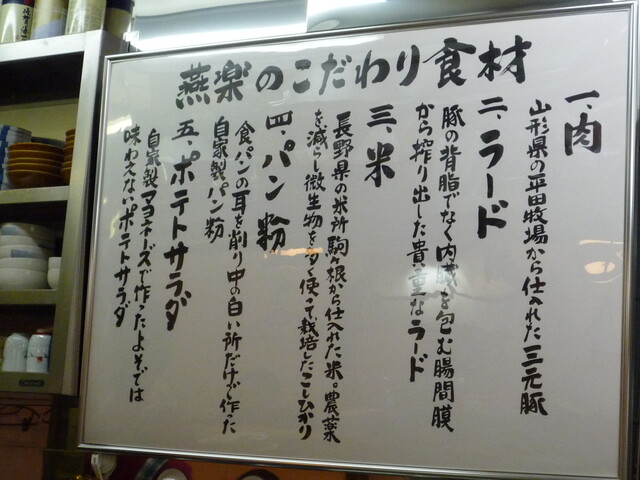 燕楽のこだわり食材
一、肉
山形県の平田牧場から仕入れた三元豚
二、ラード
豚の背脂でなく内臓を包む腸間膜
から搾り出した貴重なラード
三、米
長野県の米所駒ヶ根から仕入れた米。農薬
を減らし微生物を多く使って栽培したこしひかり
四、パン粉
食パンの耳を削り中の白い所だけで作った
自家製パン粉
五、ポテトサラダ
自家製マヨネーズで作ったよそでは
味わえないポテトサラダ